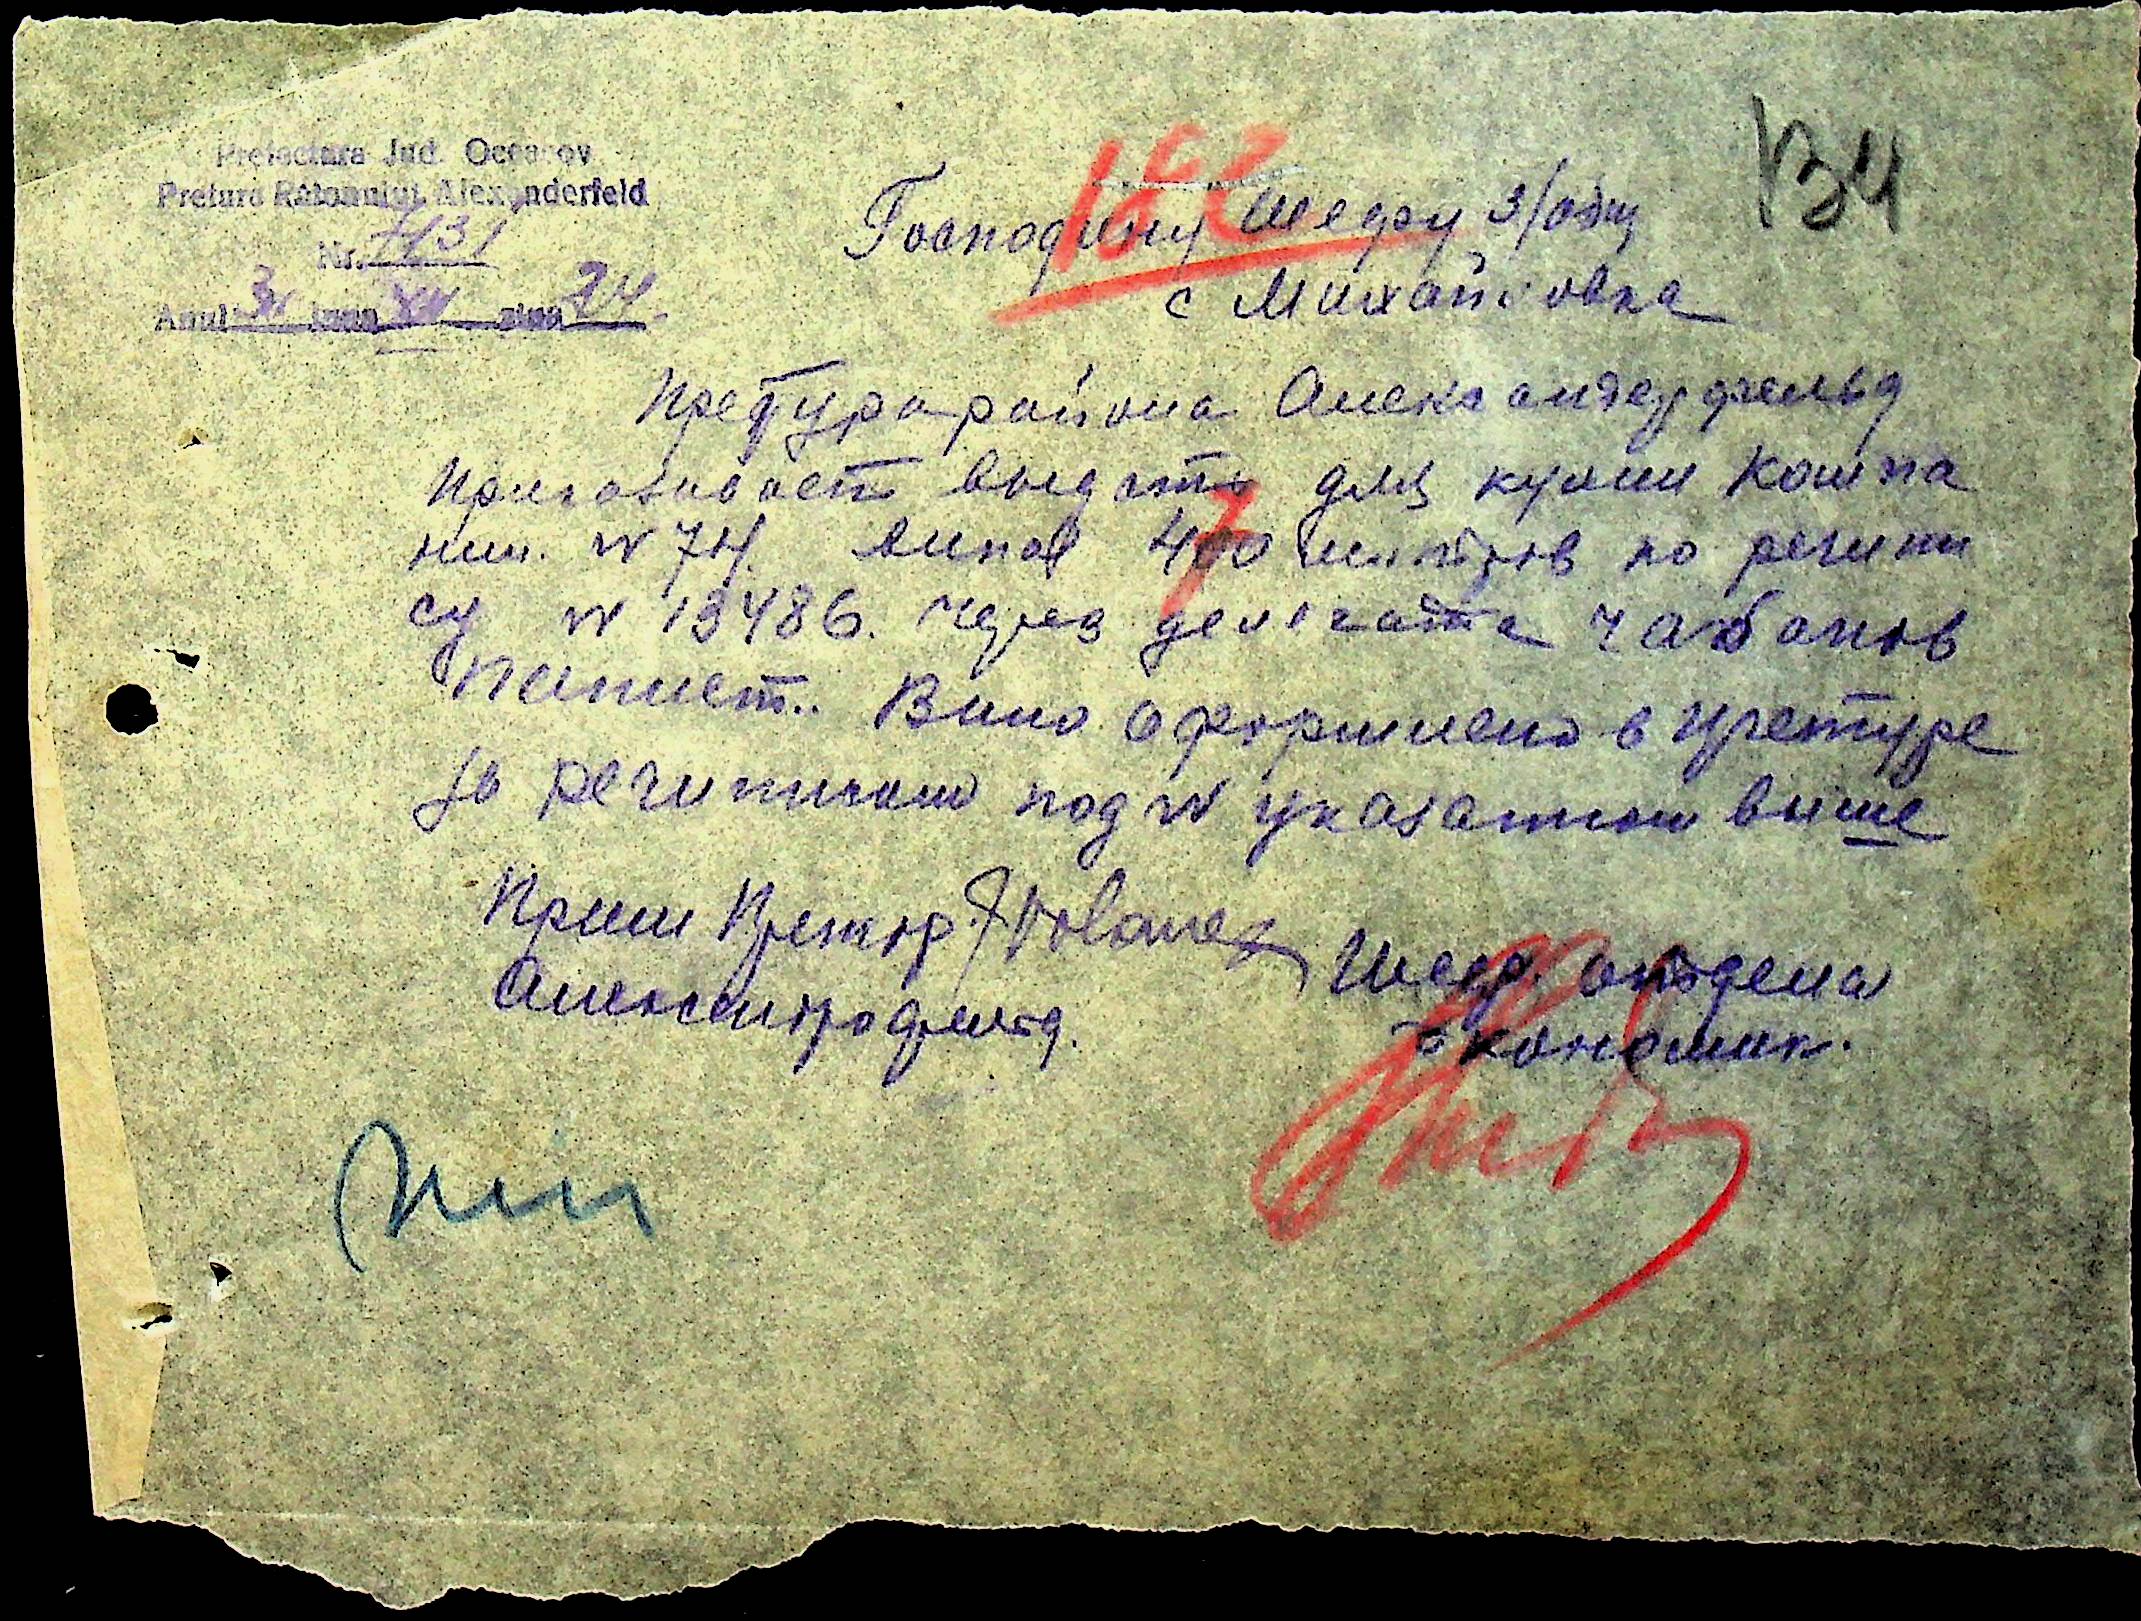 Prefectura Jud. Oceacov
Pretura Raionului Alexanderfeld
Nr. 7431
Anul luna XII ziua 24
134
Господину Шефу з/общ
с Михайловка
Претура района Александерфельд
приказивает выдать для кухни компа
нии. № 74. вина 400 литров по
су № 13486. через делегата чабанов
Вино оформлено в претуре
под № указаном више
Прим Претор
Александрофельд.
Шеф. отдела
Экономик.